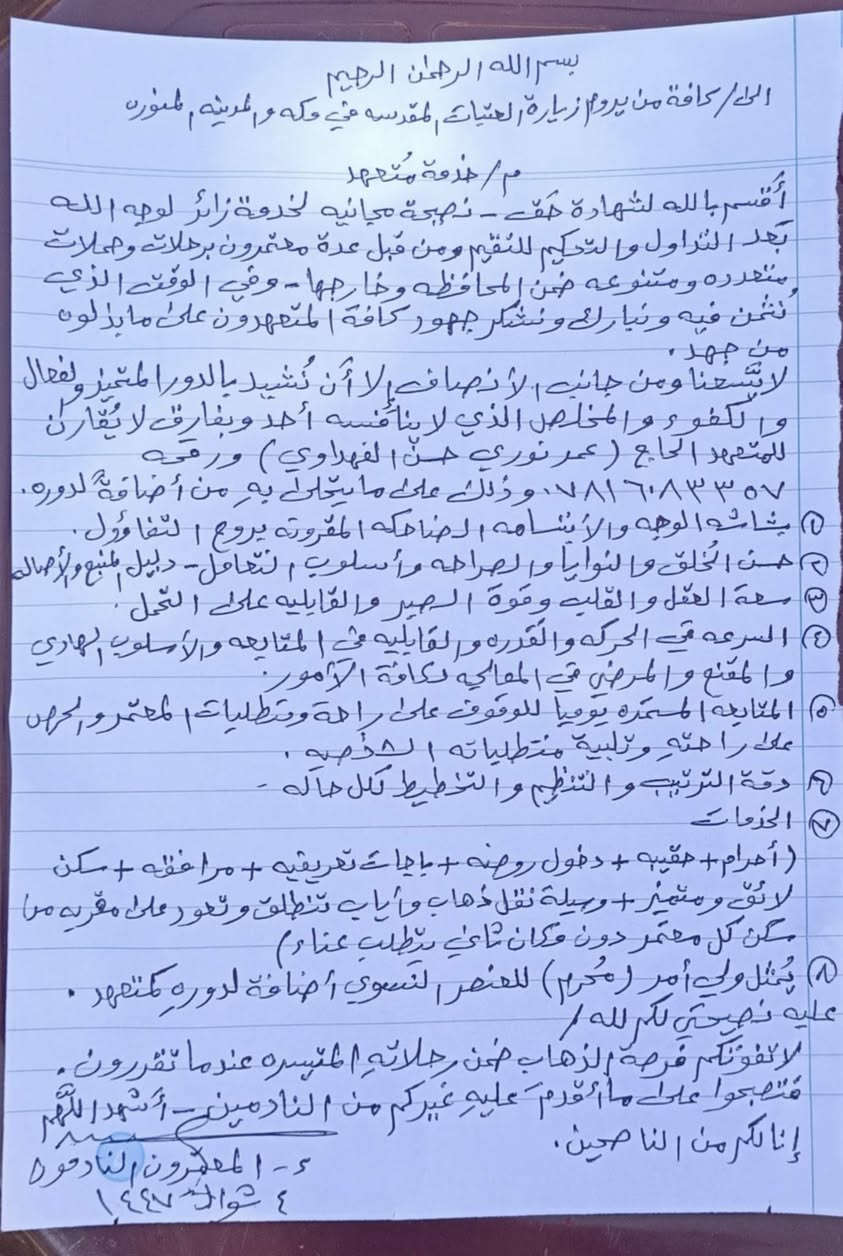 بسم الله الرحمن الرحيم
الى/ كافة من يروم زيارة العتبات المقدسه في مكه والمدينه المنوره
م/ خدمة مُتعهد
أُقسم بالله لشهادة حق - نصيحة مجانيه لخدمة زائر لوجه الله
بعد التداول والتحكيم للتقيم ومن قبل عدة معتمرون برحلات وحملات
متعدده ومتنوعه ضمن المحافظه وخارجها - وفي الوقت الذي
نُثمن فيه ونبارك ونشكر جهود كافة المتعهدون على ما يبذلون
من جهد.
لا يسعنا ومن جانب الأنصاف إلا أن نُشيد بالدور المتميز والفعال
والكفوء والمخلص الذي لا ينافسه أحد وبفارق لا يُقارن
للمتعهد الحاج (عمر نوري حسن الفهداوي) ورقمه
٠٧٨١٦٠٨٣٣٥٧ وذلك على ما يتحلى بهِ من أضافةً لدوره.
١ بشاشه الوجه والأبتسامه الضاحكه المقرونه بروح التفاؤول.
٢ حسن الخُلق والنوايا والصراحه وأسلوب التعامل - دليل المنبع والأصاله
٣ سعة العقل والقلب وقوة الصبر والقابليه على التحمل.
٤ السرعه في الحركه والقدره والقابليه في المتابعه والأسلوب الهادي
والمقنع والمرضي في المعالجه لكافة الأمور.
٥ المتابعه المستمره يومياً للوقوف على راحة ومتطلبات المعتمر والحرص
على راحتهِ وتلبية متطلباته الشخصيه.
٦ دقة الترتيب والتنظيم والتخطيط لكل حاله -
٧ الخدمات
(أحرام + حقيبه + دخول روضه + باجات تعريفيه + مرافقه + سكن
لائق ومتميز + وسيلة نقل ذهاب وأياب تنطلق وتعود على مقربه من
سكن كل معتمر دون مكان ثاني يتطلب عناء)
٨ يُمثل ولي أمر (مُحرم) للعنصر النسوي أضافة لدورهِ كمتعهد.
عليه نصيحتي لكم لله/
لا تفوتكم فرصة الذهاب ضمن رحلاتهِ المتيسره عندما تقررون.
فتصبحوا على ما أقدمَ عليهِ غيركم من النادمين - أشهد اللّهم
إنا لكم من الناصحين.
ء - المعتمرون النادمون
٤ شوال ١٤٤٧